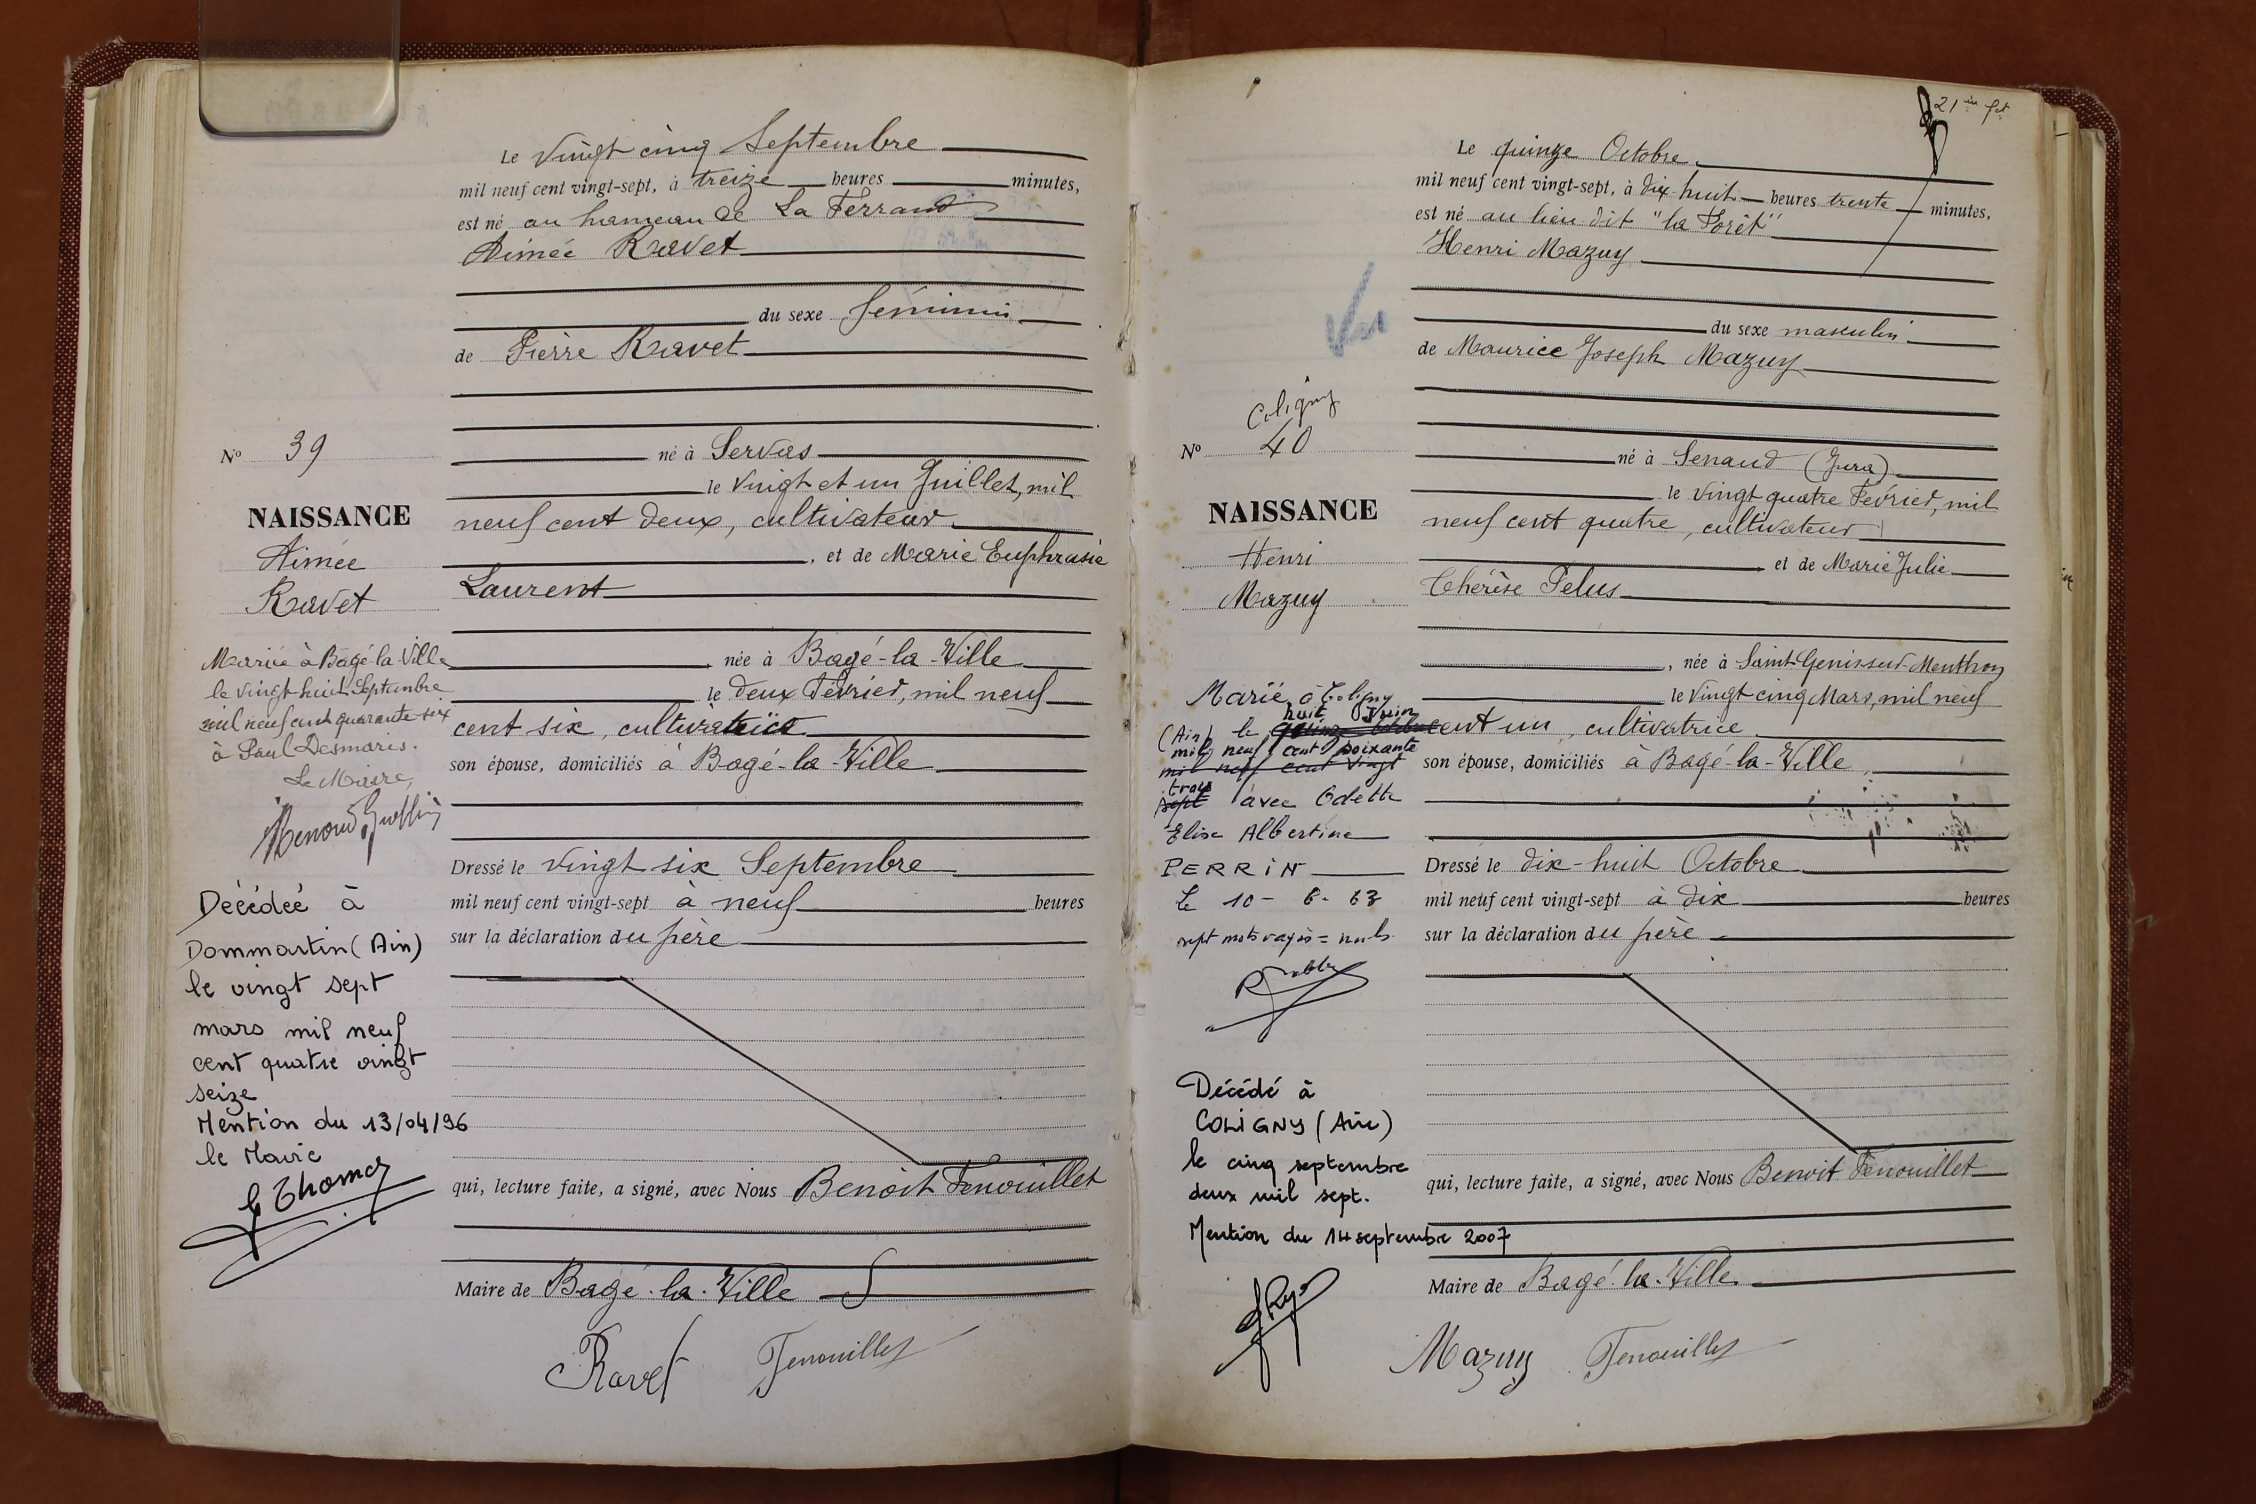 Le vingt cinq Septembre
mil neuf cent vingt-sept, à treize heures minutes,
est né au hameau de La Ferrand
Aimée Ravet
du sexe féminin
de Pierre Ravet
No 39
né à Servas
le vingt et un Juillet, mil
NAISSANCE
neuf cent deux, cultivateur
Aimée
, et de Marie Euphrasie
Ravet
Laurent
Mariée à Bâgé-la-Ville
le vingt huit Septembre
mil neuf cent quarante-six
à Paul Desmaris.
Le Maire,
née à Bagé-la-Ville
le deux Février, mil neuf
cent six, cultivatrice
son épouse, domiciliés à Bagé-la-Ville
Dressé le vingt six Septembre
mil neuf cent vingt-sept à neuf heures
sur la déclaration du père
Décédée à
Dommartin (Ain)
le vingt sept
mars mil neuf
cent quatre vingt
seize
Mention du 13/04/96
le Maire
qui, lecture faite, a signé, avec Nous Benoit Fenouillet
Maire de Bagé-la-Ville
Ravet Fenouillet
21
Le quinze Octobre
mil neuf cent vingt-sept, à dix-huit heures trente minutes,
est né au lieu dit "la Forêt"
Henri Mazuy
du sexe masculin
de Maurice Joseph Mazuy
Coligny
No 40
né à Senaud (Jura)
le vingt quatre Février, mil
NAISSANCE
neuf cent quatre, cultivateur
Henri
et de Marie Julie
Mazuy
Thérèse Pelus
, née à Saint Genis sur Menthon
le vingt cinq Mars, mil neuf
cent un, cultivatrice
son épouse, domiciliés à Bagé-la-Ville
Marié à Coligny
huit Juin
(Ain) le quinze octobre
mil neuf cent soixante
mil neuf cent vingt
trois
sept avec Odette
Elise Albertine
PERRIN
Le 10-6-63
sept mots rayés = nuls
Dressé le dix-huit Octobre
mil neuf cent vingt-sept à dix heures
sur la déclaration du père
Décédé à
COLIGNY (Ain)
le cinq septembre
deux mil sept.
Mention du 14 septembre 2007
qui, lecture faite, a signé, avec Nous Benoit Fenouillet
Maire de Bagé-la-Ville
Mazuy Fenouillet